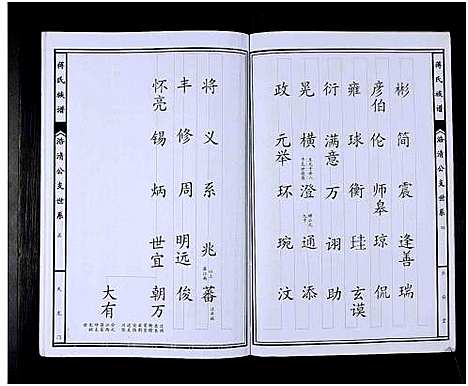 蒋氏族谱
洛清公支世系
彬 简 震 逢善 瑞
彦伯 伦 师皋 琼 侃
雍 球 衡 珪 玄谟
衍 满意 万 诩 助
晃 横 澄 通 添
政 元举 环 琬 汶
蒋氏族谱
洛清公支世系
将 义 系 兆 蕃
丰 修 周 明远 俊
怀亮 锡 炳 世宜 朝万
大有